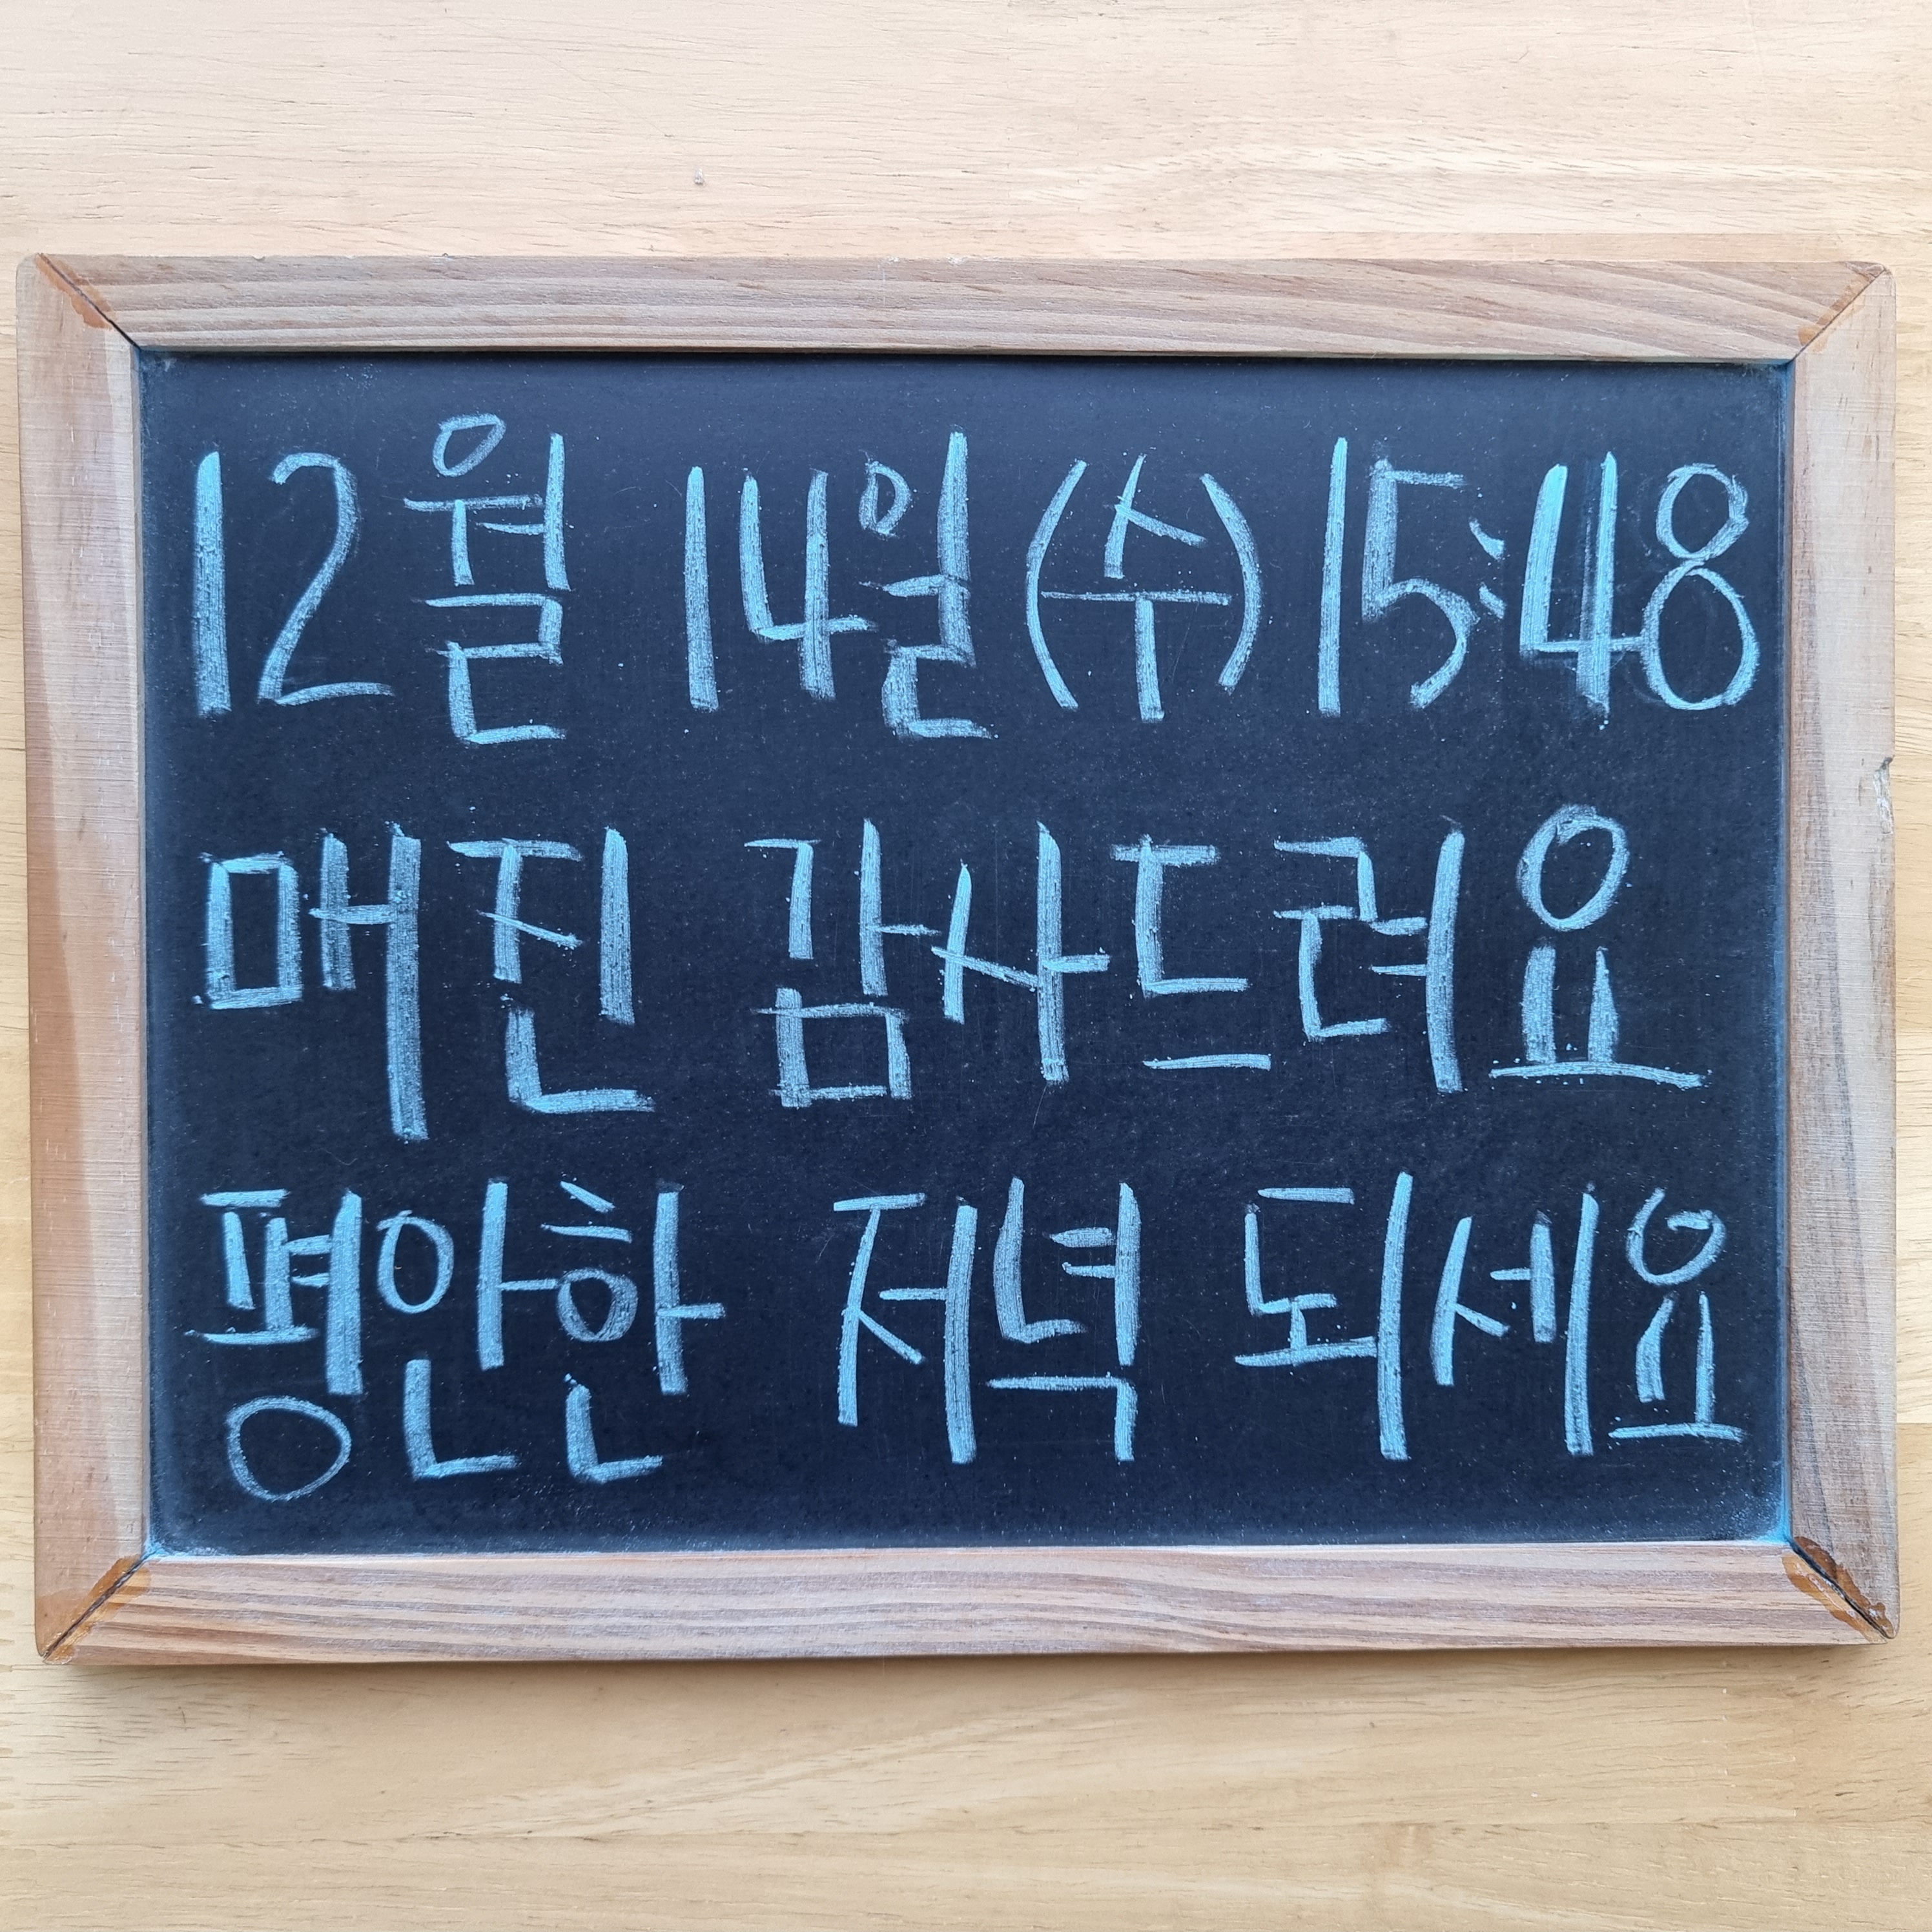 12월 14일(수) 15:48
매진 감사드려요
평안한 저녁 되세요